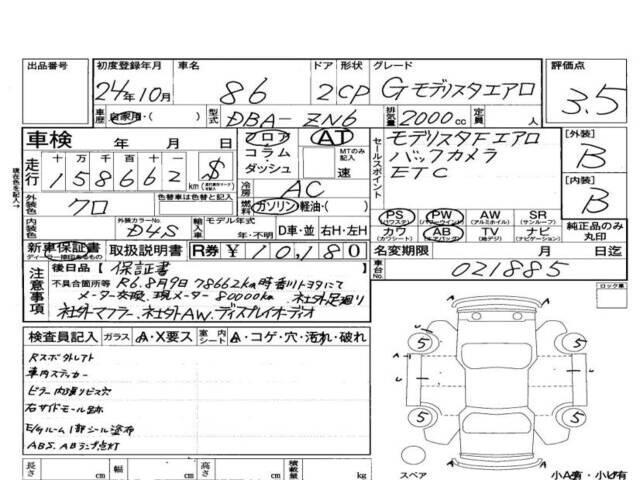 出品番号 初度登録年月 車名 ドア 形状 グレード 評価点
24年10月 86 2 CP Gモデリスタエアロ 3.5
車歴 自家用・( ) 型式 DBA-ZN6 排気量 2000cc 定員 人
車検 年 月 日 フロア AT モデリスタFエアロ [外装]
走行 十万千百十 158662 $ km コラム・ダッシュ MTのみ記入 速 セールスポイント バックカメラ B
現在色を記入→ ETC [内装]
外装色 クロ 色替車は色替と記入 冷房 AC B
燃料 ガソリン・軽油・( ) PS (パワステ) PW (パワーウィンド) AW (アルミホイル) SR (サンルーフ)
内装色 外装カラーNo. D4S 輸入車 モデル年式 年・不明 D車・並 右H・左H カワ (カワシート) AB (エアバッグ) TV (地デジ) ナビ (ナビゲーション) 純正品のみ丸印
新車保証書 取扱説明書 R券 ¥10,180 名変期限 月 日迄
ディーラー捺印あるもの 車台No. 021885
注意事項 後日品 [保証書 ロック裏
不具合箇所等 R6.8月9日 78662km時香川トヨタにて
メーター交換.現メーター80000km 社外足廻り
社外マフラー.社外AW.ディスプレイオーディオ
検査員記入 ガラス A・X要ス 室内シート A・コゲ・穴・汚れ・破れ
Rスポ外レアト
車内ステッカー
ピラー内張りビス穴
右サイドモール跡
E/gルーム1部シール塗布
ABS、ABランプ点灯
5 5
5 5
長さ cm 幅 cm 高さ cm 積載量 kg スペア 小A有・小U有